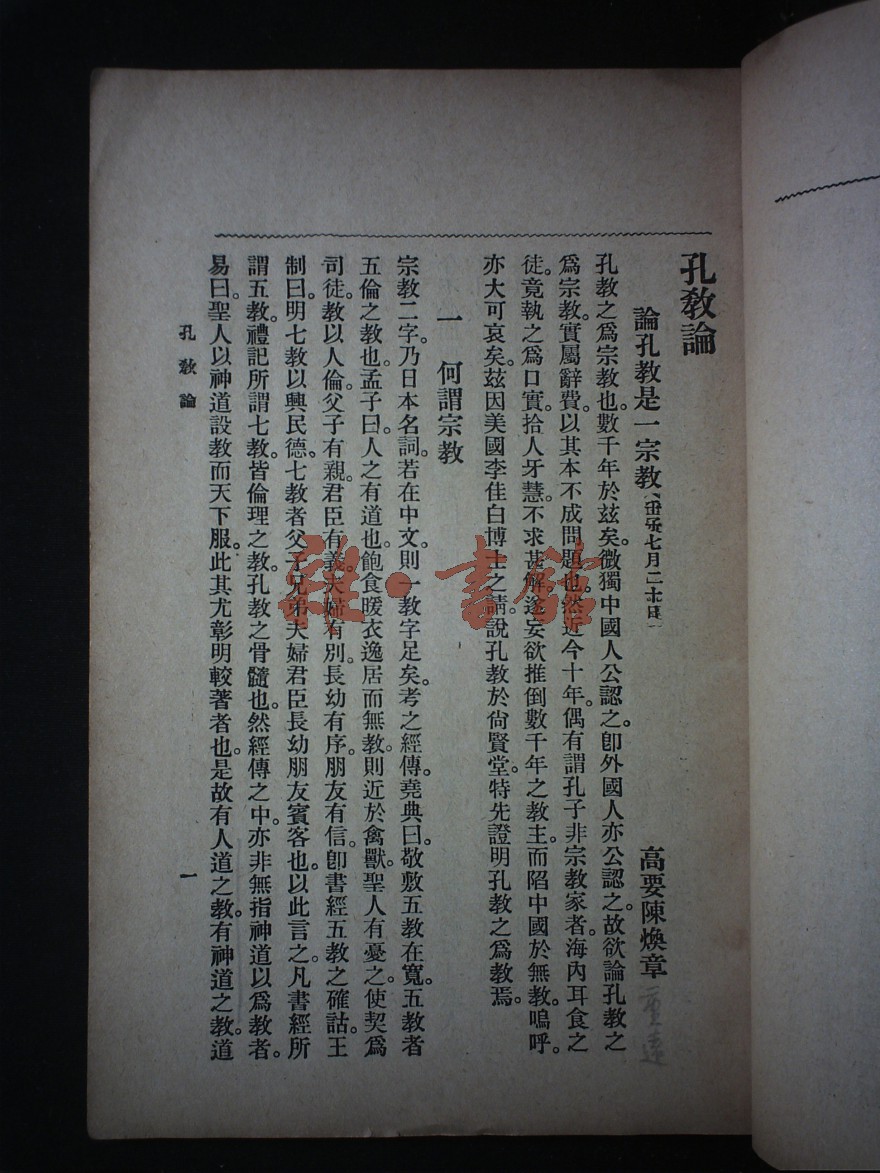 孔教論
論孔教是一宗教
七月二十
高要陳煥章
孔教之爲宗教也。數千年於玆矣。微獨中國人公認之。卽外國人亦公認之。故欲論孔教之
爲宗教。實屬辭費。以其本不成問題也。然近今十年。偶有謂孔子非宗教家者。海內耳食之
徒。竟執之爲口實。拾人牙慧。不求甚解。遂妄欲推倒數千年之教主。而陷中國於無教。嗚呼。
亦大可哀矣。玆因美國李佳白博士之請。說孔教於尙賢堂。特先證明孔教之爲教焉。
一 何謂宗教
宗教二字。乃日本名詞。若在中文。則一教字足矣。考之經傳。堯典曰。敬敷五教在寬。五教者
五倫之教也。孟子曰。人之有道也。飽食暖衣逸居而無教。則近於禽獸。聖人有憂之。使契爲
司徒。教以人倫。父子有親。君臣有義。夫婦有別。長幼有序。朋友有信。卽書經五教之確詁。王
制曰。明七教以興民德。七教者父子兄弟夫婦君臣長幼朋友賓客也。以此言之。凡書經所
謂五教。禮記所謂七教。皆倫理之教。孔教之骨髓也。然經傳之中。亦非無指神道以爲教者。
易曰。聖人以神道設教而天下服。此其尤彰明較著者也。是故有人道之教。有神道之教。道
孔教論
一
書館